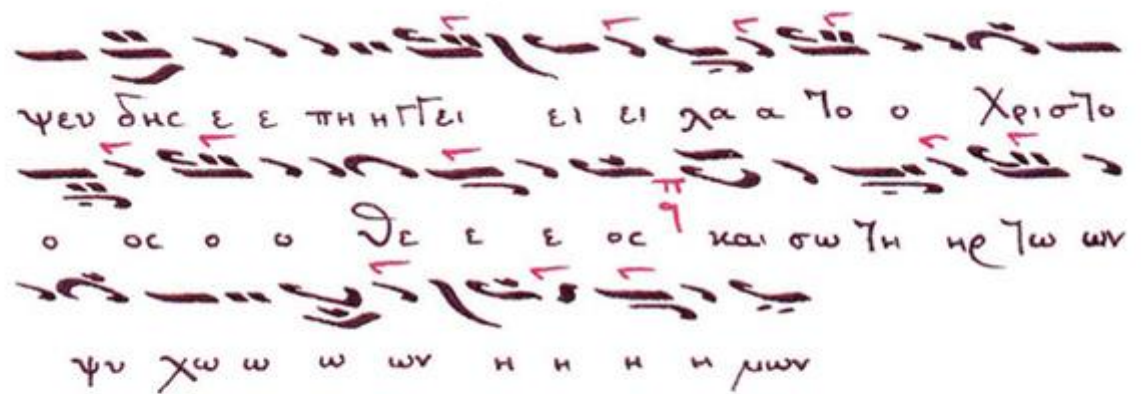 ψευ δης ε ε πη η γγει ει ει λα α το ο Χριστο
ο ος ο ο Θε ε ε ος και σω τη ηρ τω ων
ψυ χω ω ω ων η η η η μων